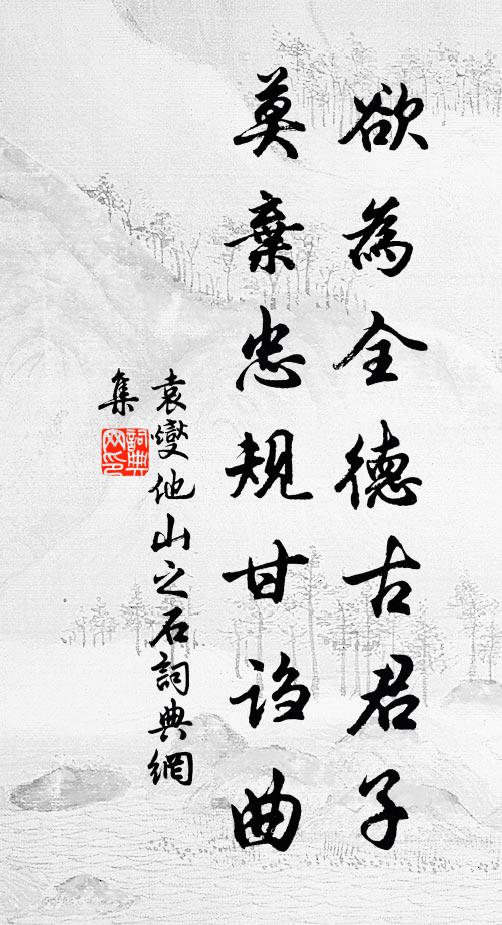 欲為全德古君子
莫棄忠規甘谄曲
袁燮他山之石詞典網
集
詞典网印